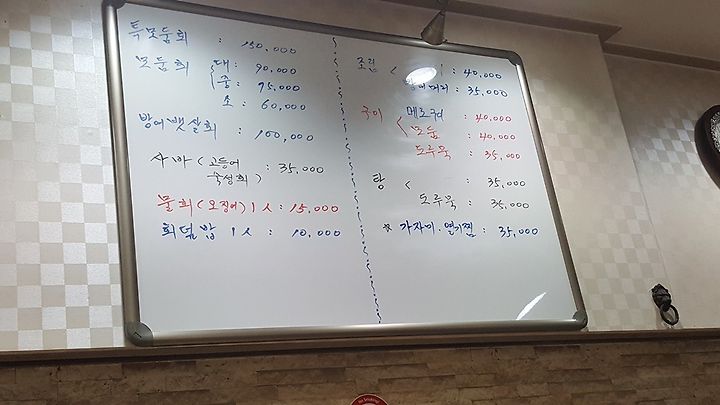 특모둠회 : 150,000
모둠회 대 : 90,000
중 : 75,000
소 : 60,000
방어뱃살회 : 100,000
사바 (고등어 숙성회) : 35,000
물회 (오징어) 1人 : 15,000
회덮밥 1人 : 10,000
조림 < : 40,000
방어머리 : 35,000
구이 < 메로구이 : 40,000
모둠 : 40,000
도루묵 : 35,000
탕 < : 35,000
도루묵 : 35,000
※ 가자미.열기찜 : 35,000